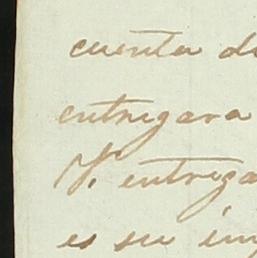 cuenta d
entregara
V. entrega
es su im